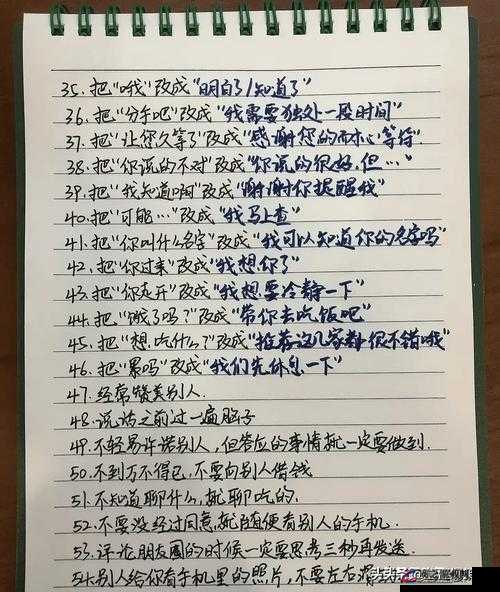 35.把“哦”改成“明白了/知道了”
36.把“分手吧”改成“我需要独处一段时间”
37.把“让您久等了”改成“感谢您的耐心等待”
38.把“你说的不对”改成“你说的很好,但…”
39.把“我知道啊”改成“谢谢你提醒我”
40.把“可能…”改成“我马上查”
41.把“你叫什么名字”改成“我可以知道你的名字吗”
42.把“你过来”改成“我想你了”
43.把“你走开”改成“我想要冷静一下”
44.把“饿了吗?”改成“带你去吃饭吧”
45.把“想吃什么?”改成“推荐这几家都很不错哦”
46.把“累吗”改成“我们先休息一下”
47.经常赞美别人.
48.说话之前过一遍脑子
49.不轻易许诺别人,但答应的事情就一定要做到.
50.不到万不得已,不要向别人借钱
51.不知道聊什么,就聊吃的.
52.不要没经过同意,就随便看别人的手机.
53.评论朋友圈的时候一定要思考三秒再发送.
54.别人给你看手机里的照片,不要左右
头条